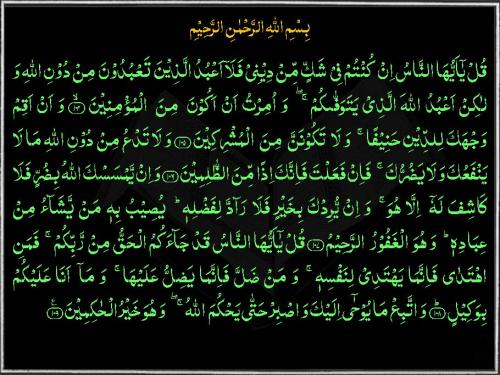 بِسْمِ اللهِ الرَّحْمٰنِ الرَّحِيْمِ
قُلْ يٰۤاَيُّهَا النَّاسُ اِنْ كُنْتُمْ فِيْ شَكٍّ مِّنْ دِيْنِيْ فَلَاۤ اَعْبُدُ الَّذِيْنَ تَعْبُدُوْنَ مِنْ دُوْنِ اللهِ وَ
لٰكِنْ اَعْبُدُ اللهَ الَّذِيْ يَتَوَفّٰىكُمْ ۚۖ وَ اُمِرْتُ اَنْ اَكُوْنَ مِنَ الْمُؤْمِنِيْنَ ۙ﴿۱۰۴﴾ وَ اَنْ اَقِمْ
وَجْهَكَ لِلدِّيْنِ حَنِيْفًا ۚ وَ لَا تَكُوْنَنَّ مِنَ الْمُشْرِكِيْنَ ﴿۱۰۵﴾ وَ لَا تَدْعُ مِنْ دُوْنِ اللهِ مَا لَا
يَنْفَعُكَ وَ لَا يَضُرُّكَ ۚ فَاِنْ فَعَلْتَ فَاِنَّكَ اِذًا مِّنَ الظّٰلِمِيْنَ ﴿۱۰۶﴾ وَ اِنْ يَّمْسَسْكَ اللهُ بِضُرٍّ فَلَا
كَاشِفَ لَهٗۤ اِلَّا هُوَ ۚ وَ اِنْ يُّرِدْكَ بِخَيْرٍ فَلَا رَآدَّ لِفَضْلِهٖ ؕ يُصِيْبُ بِهٖ مَنْ يَّشَآءُ مِنْ
عِبَادِهٖ ؕ وَ هُوَ الْغَفُوْرُ الرَّحِيْمُ ﴿۱۰۷﴾ قُلْ يٰۤاَيُّهَا النَّاسُ قَدْ جَآءَكُمُ الْحَقُّ مِنْ رَّبِّكُمْ ۚ فَمَنِ
اهْتَدٰى فَاِنَّمَا يَهْتَدِيْ لِنَفْسِهٖ ۚ وَ مَنْ ضَلَّ فَاِنَّمَا يَضِلُّ عَلَيْهَا ۚ وَ مَاۤ اَنَا عَلَيْكُمْ
بِوَكِيْلٍ ؕ﴿۱۰۸﴾ وَ اتَّبِعْ مَا يُوْحٰۤى اِلَيْكَ وَ اصْبِرْ حَتّٰى يَحْكُمَ اللهُ ۚۖ وَ هُوَ خَيْرُ الْحٰكِمِيْنَ ﴿۱۰۹﴾